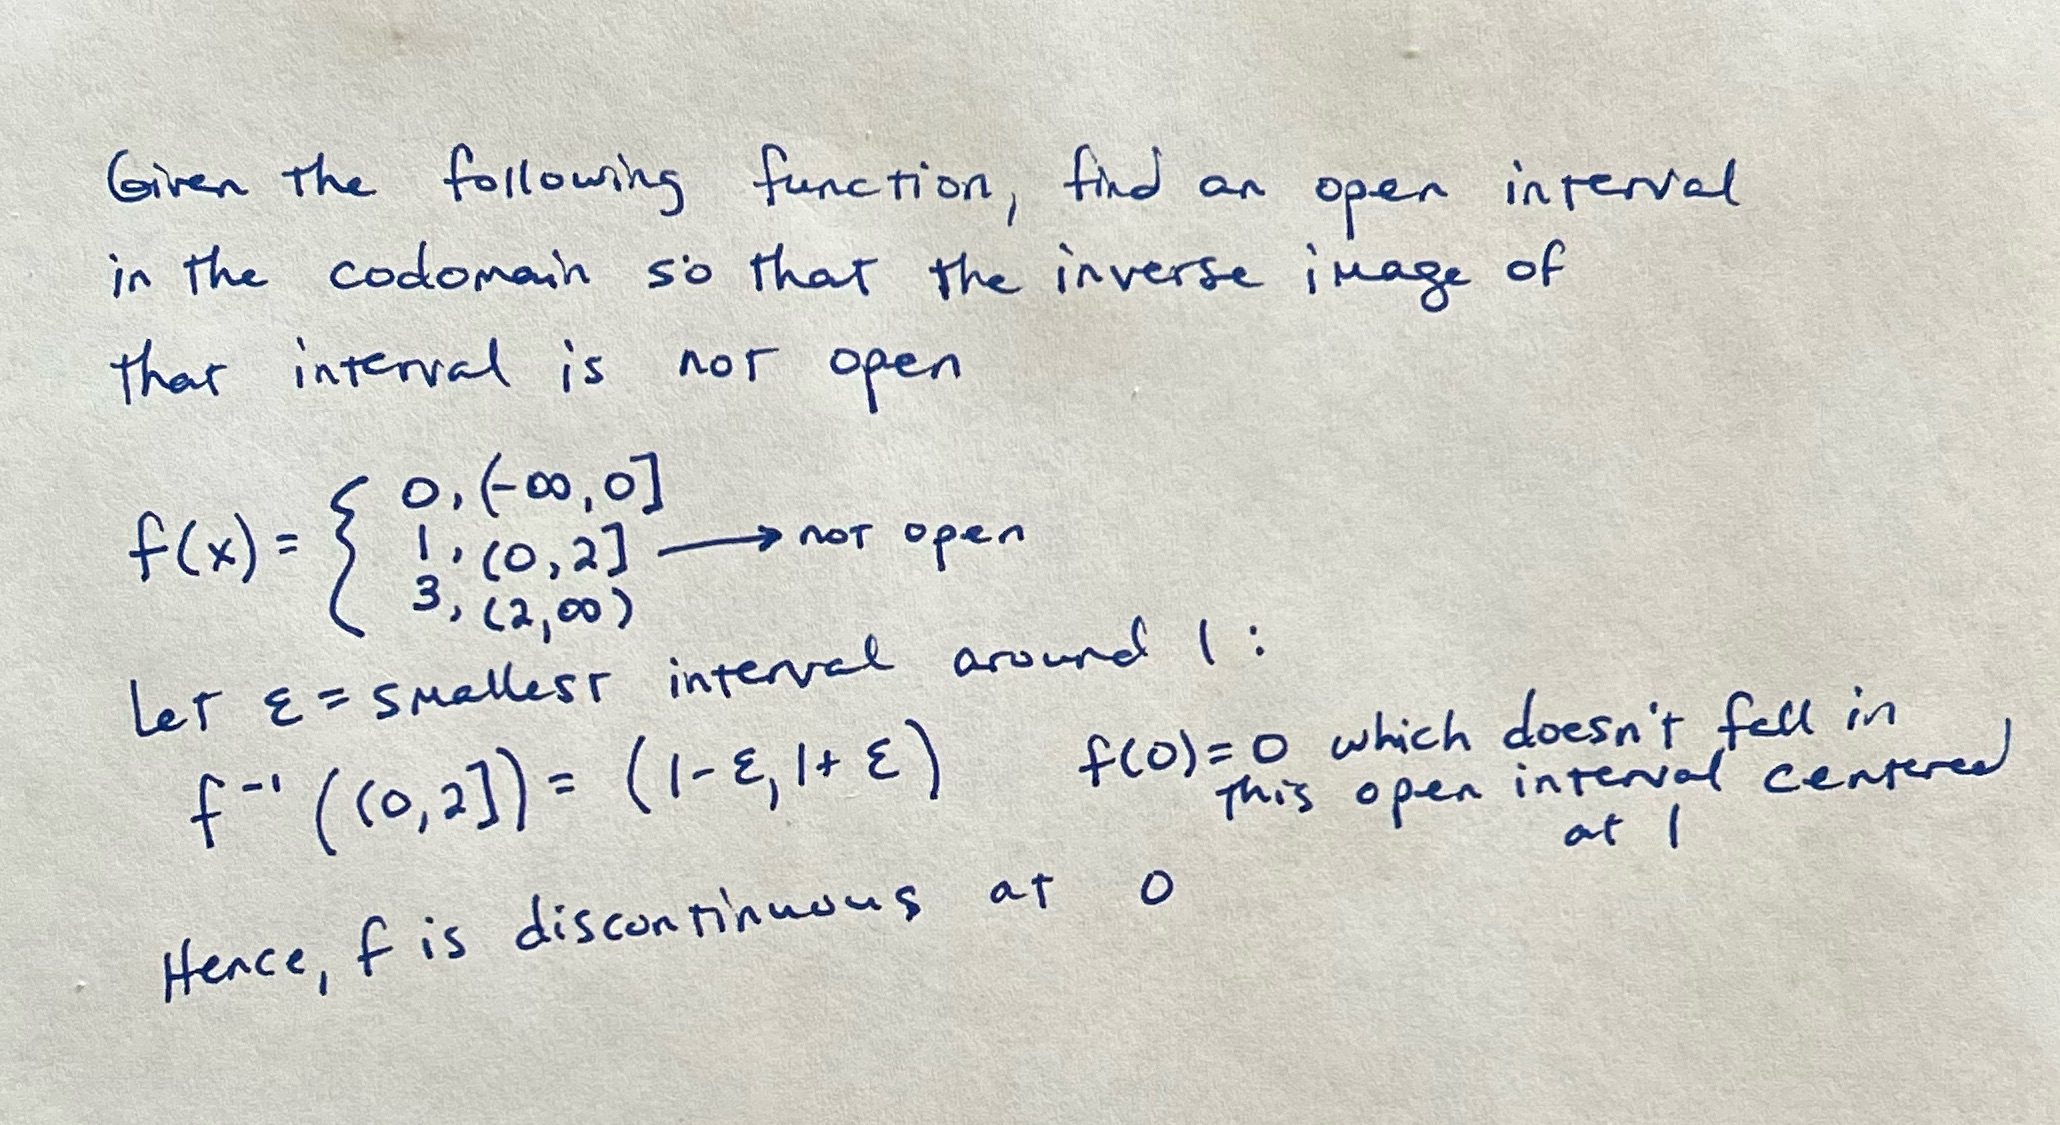 Given the following function, find an open interval
in the codomain so that the inverse image of
that interval is not open
f(x) = { 0, (-∞, 0]
1, (0, 2] → not open
3, (2, ∞)
Let ε = smallest interval around 1:
f⁻¹((0, 2]) = (1-ε, 1+ε) f(0) = 0 which doesn't fall in
this open interval centered
at 1
Hence, f is discontinuous at 0